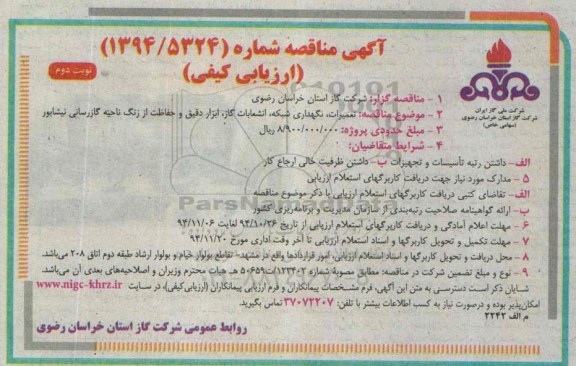 آگهی مناقصه شماره (۱۳۹۴/۵۳۲۴)
(ارزیابی کیفی)
نوبت دوم
شرکت ملی گاز ایران
شرکت گاز استان خراسان رضوی
(سهامی خاص)
۱ - مناقصه گزار: شرکت گاز استان خراسان رضوی
۲ - موضوع مناقصه: تعمیرات، نگهداری شبکه، انشعابات گاز، ابزار دقیق و حفاظت از زنگ ناحیه گازرسانی نیشابور
۳ - مبلغ حدودی پروژه: ۸/۹۰۰/۰۰۰/۰۰۰ ریال
۴ - شرایط متقاضیان:
الف- داشتن رتبه تأسیسات و تجهیزات ب- داشتن ظرفیت خالی ارجاع کار
۵ - مدارک مورد نیاز جهت دریافت کاربرگهای استعلام ارزیابی
الف- تقاضای کتبی دریافت کاربرگهای استعلام ارزیابی با ذکر موضوع مناقصه
ب- ارائه گواهینامه صلاحیت رتبه‌بندی از سازمان مدیریت و برنامه‌ریزی کشور
۶ - مهلت اعلام آمادگی و دریافت کاربرگهای استعلام ارزیابی از تاریخ ۹۴/۱۰/۲۶ لغایت ۹۴/۱۱/۰۶
۷ - مهلت تکمیل و تحویل کاربرگها و اسناد استعلام ارزیابی تا آخر وقت اداری مورخ ۹۴/۱۱/۲۰
۸ - محل دریافت و تحویل کاربرگها و اسناد استعلام ارزیابی، امور قراردادها واقع در مشهد- تقاطع بولوار خیام و بولوار ارشاد طبقه دوم اتاق ۲۰۸ می‌باشد.
۹ - نوع و مبلغ تضمین شرکت در مناقصه: مطابق مصوبه شماره ۱۲۳۴۰۲/ت۵۰۶۵۹ هـ هیات محترم وزیران و اصلاحیه‌های بعدی آن می‌باشد.
شایان ذکر است دسترسی به متن این آگهی، فرم مشخصات پیمانکاران و فرم ارزیابی پیمانکاران (ارزیابی کیفی)، در سایت www.nigc-khrz.ir
امکان‌پذیر بوده و درصورت نیاز به کسب اطلاعات بیشتر با تلفن: ۳۷۰۷۲۲۰۷ تماس بگیرید.
م الف ۲۲۴۲
روابط عمومی شرکت گاز استان خراسان رضوی
ParsNamadData